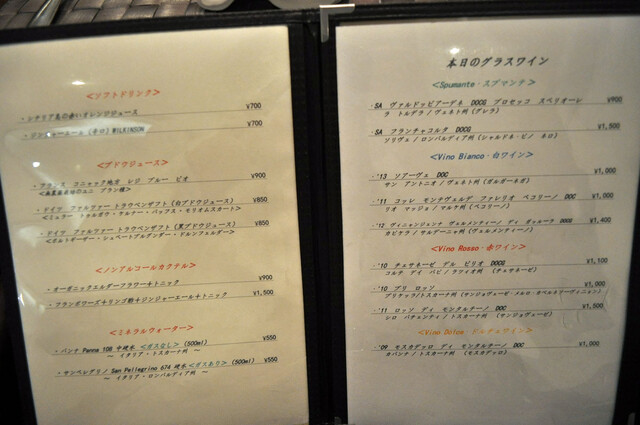 <ソフトドリンク>
・シチリア島の赤いオレンジジュース ¥700
・ジンジャーエール (辛口) WILKINSON ¥700
<ブドウジュース>
・フランス コニャック地方 レジ ブルー ビオ ¥900
・ドイツ ファルファー トラウベンザフト (白ブドウジュース) ¥850
<ミュラー トゥルガウ・ケルナー・バッフス・モリオムスカート>
・ドイツ ファルファー トラウベンザフト (黒ブドウジュース) ¥850
<ポルトギーザー・シュペートブルグンダー・ドルンフェルダー>
<ノンアルコールカクテル>
・オーガニックエルダーフラワー+トニック ¥900
・フランボワーズ+リンゴ酢+ジンジャーエール+トニック ¥1,500
<ミネラルウォーター>
・パンナ Panna 108 中硬水 <ガスなし> (500ml) ¥550
~ イタリア・トスカーナ州 ~
・サンペレグリノ San Pellegrino 674 硬水 <ガスあり> (500ml) ¥550
~ イタリア・ロンバルディア州 ~
本日のグラスワイン
<Spumante・スプマンテ>
・SA ヴァルドッビアーデネ DOCG プロセッコ スペリオーレ ¥900
ラ トルデラ / ヴェネト州 (グレラ)
・SA フランチャコルタ DOCG ¥1,500
ソリヴェ / ロンバルディア州 (シャルドネ・ピノ ネロ)
<Vino Bianco・白ワイン>
・'13 ソアーヴェ DOC ¥1,000
サン アントニオ / ヴェネト州 (ガルガーネガ)
・'11 コッレ モンナヴェルデ ファレリオ ペコリーノ DOC ¥1,000
リオ マッジョ / マルケ州 (ペコリーノ)
・'12 ヴィニジェンナ ヴェルメンティーノ ディ ガッルーラ DOCG ¥1,400
カピケラ / サルデーニャ州 (ヴェルメンティーノ)
<Vino Rosso・赤ワイン>
・'10 チェザネーゼ デル ピリオ DOCG ¥1,100
コルテ デイ パピ / ラツィオ州 (チェザネーゼ)
・'10 ブリ ロッソ ¥1,000
ブリケッラ / トスカーナ州 (サンジョヴェーゼ・メルロ・カベルネソーヴィニヨン)
・'11 ロッソ ディ モンタルチーノ DOC ¥1,500
シロ パチェンティ / トスカーナ州 (サンジョヴェーゼ)
<Vino Dolce・デザートワイン>
・'09 モスカデッロ ディ モンタルチーノ DOC ¥1,000
カパンナ / トスカーナ州 (モスカデッロ)